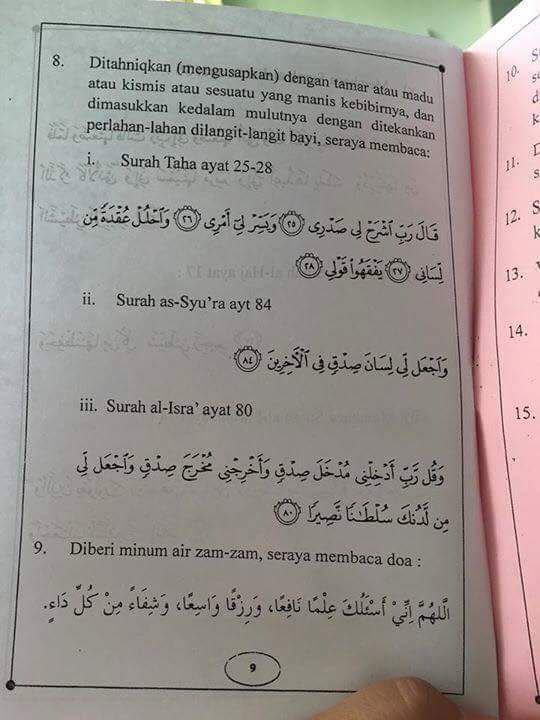 8. Ditahniqkan (mengusapkan) dengan tamar atau madu
atau kismis atau sesuatu yang manis kebibirnya, dan
dimasukkan kedalam mulutnya dengan ditekankan
perlahan-lahan dilangit-langit bayi, seraya membaca:
i. Surah Taha ayat 25-28
قَالَ رَبِّ ٱشْرَحْ لِى صَدْرِى ٢٥ وَيَسِّرْ لِىٓ أَمْرِى ٢٦ وَٱحْلُلْ عُقْدَةً مِّن
لِّسَانِى ٢٧ يَفْقَهُوا۟ قَوْلِى ٢٨
ii. Surah as-Syu'ra ayt 84
وَٱجْعَل لِّى لِسَانَ صِدْقٍ فِى ٱلْأَخِرِينَ ٨٤
iii. Surah al-Isra' ayat 80
وَقُل رَّبِّ أَدْخِلْنِى مُدْخَلَ صِدْقٍ وَأَخْرِجْنِى مُخْرَجَ صِدْقٍ وَٱجْعَل لِّى
مِن لَّدُنكَ سُلْطَـٰنًا نَّصِيرًا ٨٠
9. Diberi minum air zam-zam, seraya membaca doa :
اَللّٰهُمَّ إِنِّيْ أَسْئَلُكَ عِلْمًا نَافِعًا، وَرِزْقًا وَاسِعًا، وَشِفَاءً مِنْ كُلِّ دَاءٍ.
9
10.
11.
12.
13.
14.
15.